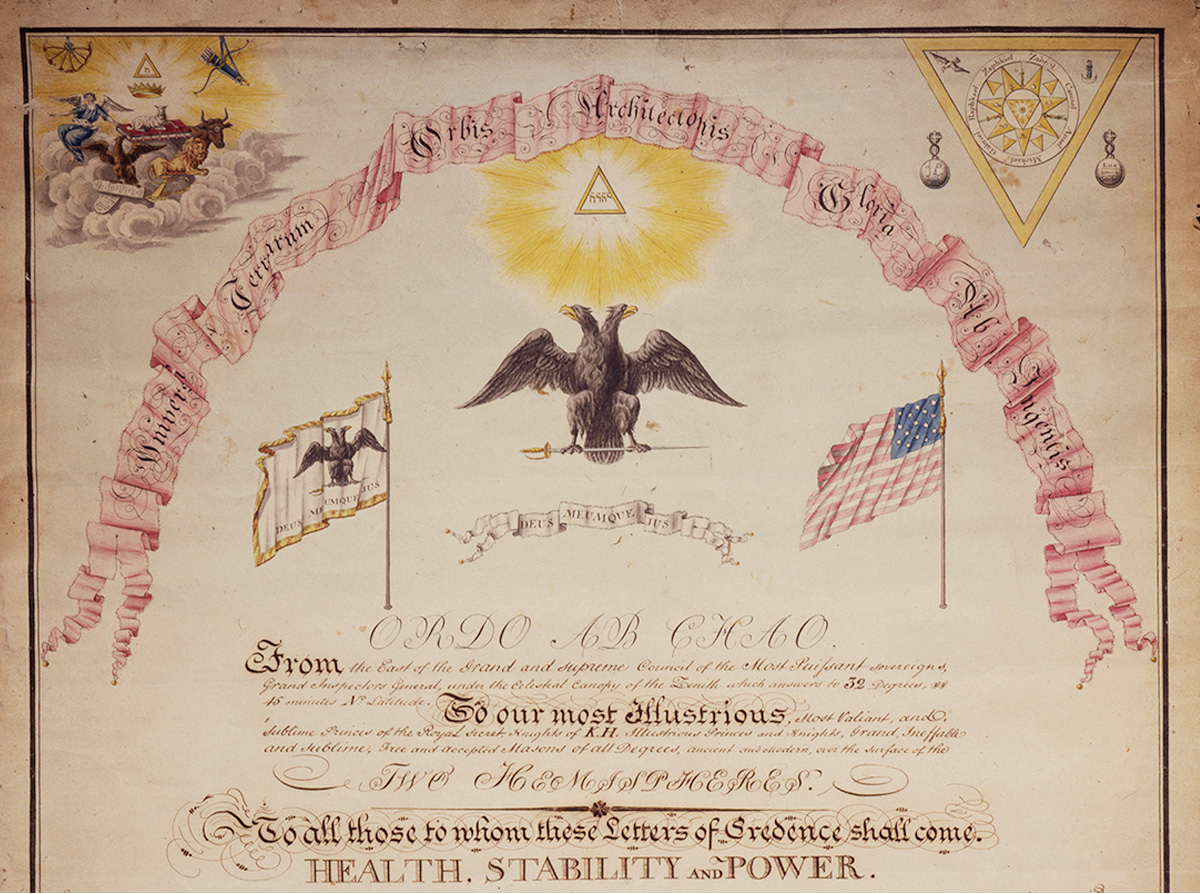 Universi Terrarum Orbis Architectonis Gloria Ab Ingentis
Zaphkiel Zabriel Camael Azrael Michael Gabriel Raphael
Lux
DEUS MEUMQUE IUS
DEUS MEUMQUE IUS
ORDO AB CHAO.
From the East of the Grand and supreme Council of the Most Puissant sovereigns,
Grand Inspectors General, under the Celestial Canopy of the Zenith which answers to 32 Degrees,
45 minutes N. Latitude. To our most Illustrious, Most Valiant, and
sublime Princes of the Royal Secret, Knights of K.H. Illustrious Princes and Knights, Grand, Ineffable
and sublime, Free and accepted Masons of all Degrees, ancient and modern, over the surface of the
TWO HEMISPHERES.
To all those to whom these Letters of Credence shall come.
HEALTH, STABILITY AND POWER.